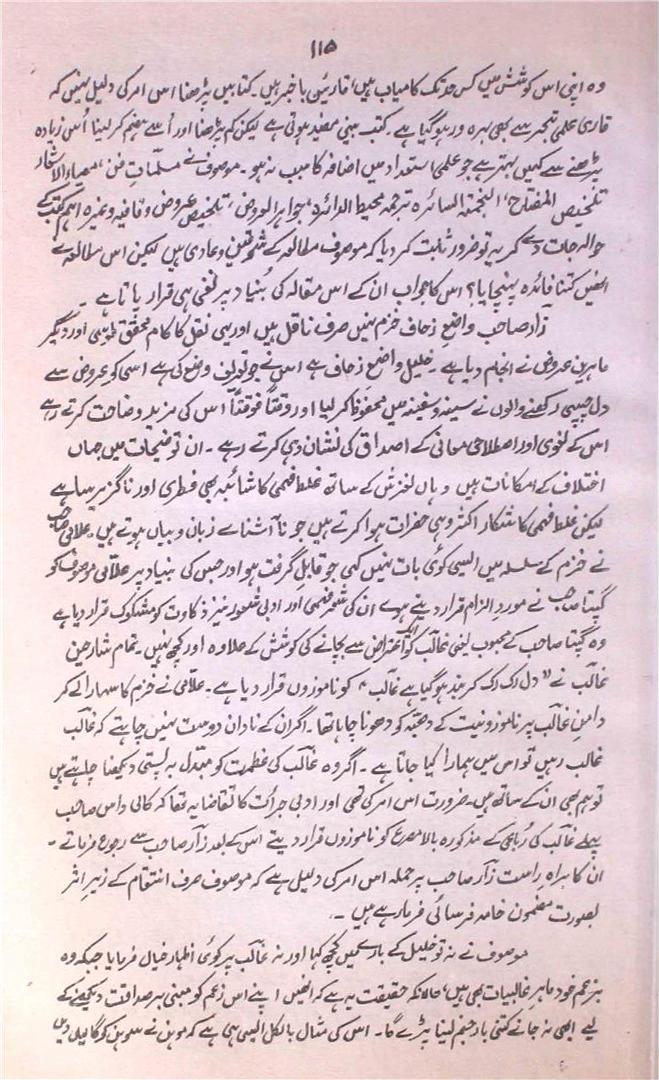 ۱۱۵
وہ اپنی اس کوشش میں کس حد تک کامیاب ہیں، قارئین باخبر ہیں۔ کتابیں پڑھنا اس امر کی دلیل نہیں کہ
قاری علمی تبحر سے بھی بہرہ ور ہو گیا ہے۔ کتب بینی مفید ہوتی ہے لیکن کم پڑھنا اور اُسے ہضم کر لینا اُس زیادہ
پڑھنے سے کہیں بہتر ہے جو علمی استعداد میں اضافہ کا سبب نہ ہو۔ موصوف نے مسلّماتِ فن، معیار الاشعار
تلخیص المفتاح، النجمتہ السائرہ ترجمہ محیط الدائرہ، جواہر العروض، تلخیص عروض و قافیہ وغیرہ اہم کتب کے
حوالہ جات دے کر یہ تو ضرور ثابت کر دیا کہ موصوف مطالعہ کے شوقین و عادی ہیں لیکن اس مطالعہ نے
انھیں کتنا فائدہ پہنچایا؟ اس کا جواب ان کے اس مقالہ کی بنیاد پر نفی ہی قرار پاتا ہے۔
زار صاحب واضعِ زحاف خرم نہیں صرف ناقل ہیں اور یہی نقل کا کام محقق طوسی اور دیگر
ماہرین عروض نے انجام دیا ہے۔ خلیل واضعِ زحاف ہے اس نے جو تعریف وضع کی ہے اسی کو عروض سے
دل چسپی رکھنے والوں نے سینہ و سفینہ میں محفوظ کر لیا اور وقتاً فوقتاً اس کی مزید وضاحت کرتے رہے
اس کے لغوی اور اصطلاحی معانی کے اصداق کی نشان دہی کرتے رہے۔ ان توضیحات میں جہاں
اختلاف کے امکانات ہیں وہاں لغزش کے ساتھ غلط فہمی کا شائبہ بھی فطری اور ناگزیر سا ہے
لیکن غلط فہمی کا شکار اکثر وہی حضرات ہوا کرتے ہیں جو نا آشنائے زبان و بیاں ہوتے ہیں۔ علامی صاحب
نے خرم کے سلسلہ میں ایسی کوئی بات نہیں کہی جو قابلِ گرفت ہو اور جس کی بنیاد پر علامی موصوف کو
گپتا صاحب نے موردِ الزام قرار دیتے ہوئے ان کی شعر فہمی اور ادبی شعور نیز ذکاوت کو مشکوک قرار دیا ہے
وہ گپتا صاحب کے محبوب یعنی غالب کو ایک اعتراض سے بچانے کی کوشش کے علاوہ اور کچھ نہیں۔ تمام شارحین
غالب نے "دل رک رک کر بند ہو گیا ہے غالب" کو ناموزوں قرار دیا ہے۔ علامی نے خرم کا سہارا لے کر
دامنِ غالب پر ناموزونیت کے دھبّہ کو دھونا چاہا تھا۔ اگر ان کے نادان دوست نہیں چاہتے کہ غالب
غالب رہیں تو اس میں ہمارا کیا جاتا ہے۔ اگر وہ غالب کی عظمت کو مبدل بہ پستی دیکھنا چاہتے ہیں
تو ہم بھی ان کے ساتھ ہیں۔ ضرورت اس امر کی تھی اور ادبی جرأت کا تقاضا یہ تھا کہ کالی داس صاحب
پہلے غالب کی رُباعی کے مذکورہ بالا مصرع کو ناموزوں قرار دیتے اس کے بعد زار صاحب سے رجوع فرماتے۔
ان کا براہِ راست زار صاحب پر حملہ اس امر کی دلیل ہے کہ موصوف صرف انتقام کے زیرِ اثر
بصورت مضمون خامہ فرسائی فرما رہے ہیں۔
موصوف نے نہ تو خلیل کے بارے میں کچھ کہا اور نہ غالب پر کوئی اظہارِ خیال فرمایا جبکہ وہ
بزعم خود ماہرِ غالبیات بھی ہیں، حالانکہ حقیقت یہ ہے کہ انھیں اپنے اس زعم کو مبنی بر صداقت دیکھنے کے
لیے ابھی نہ جانے کتنی بار جنم لینا پڑے گا۔ اس کی مثال بالکل ایسی ہی ہے کہ موہن نے سوہن کو گالیاں دیں